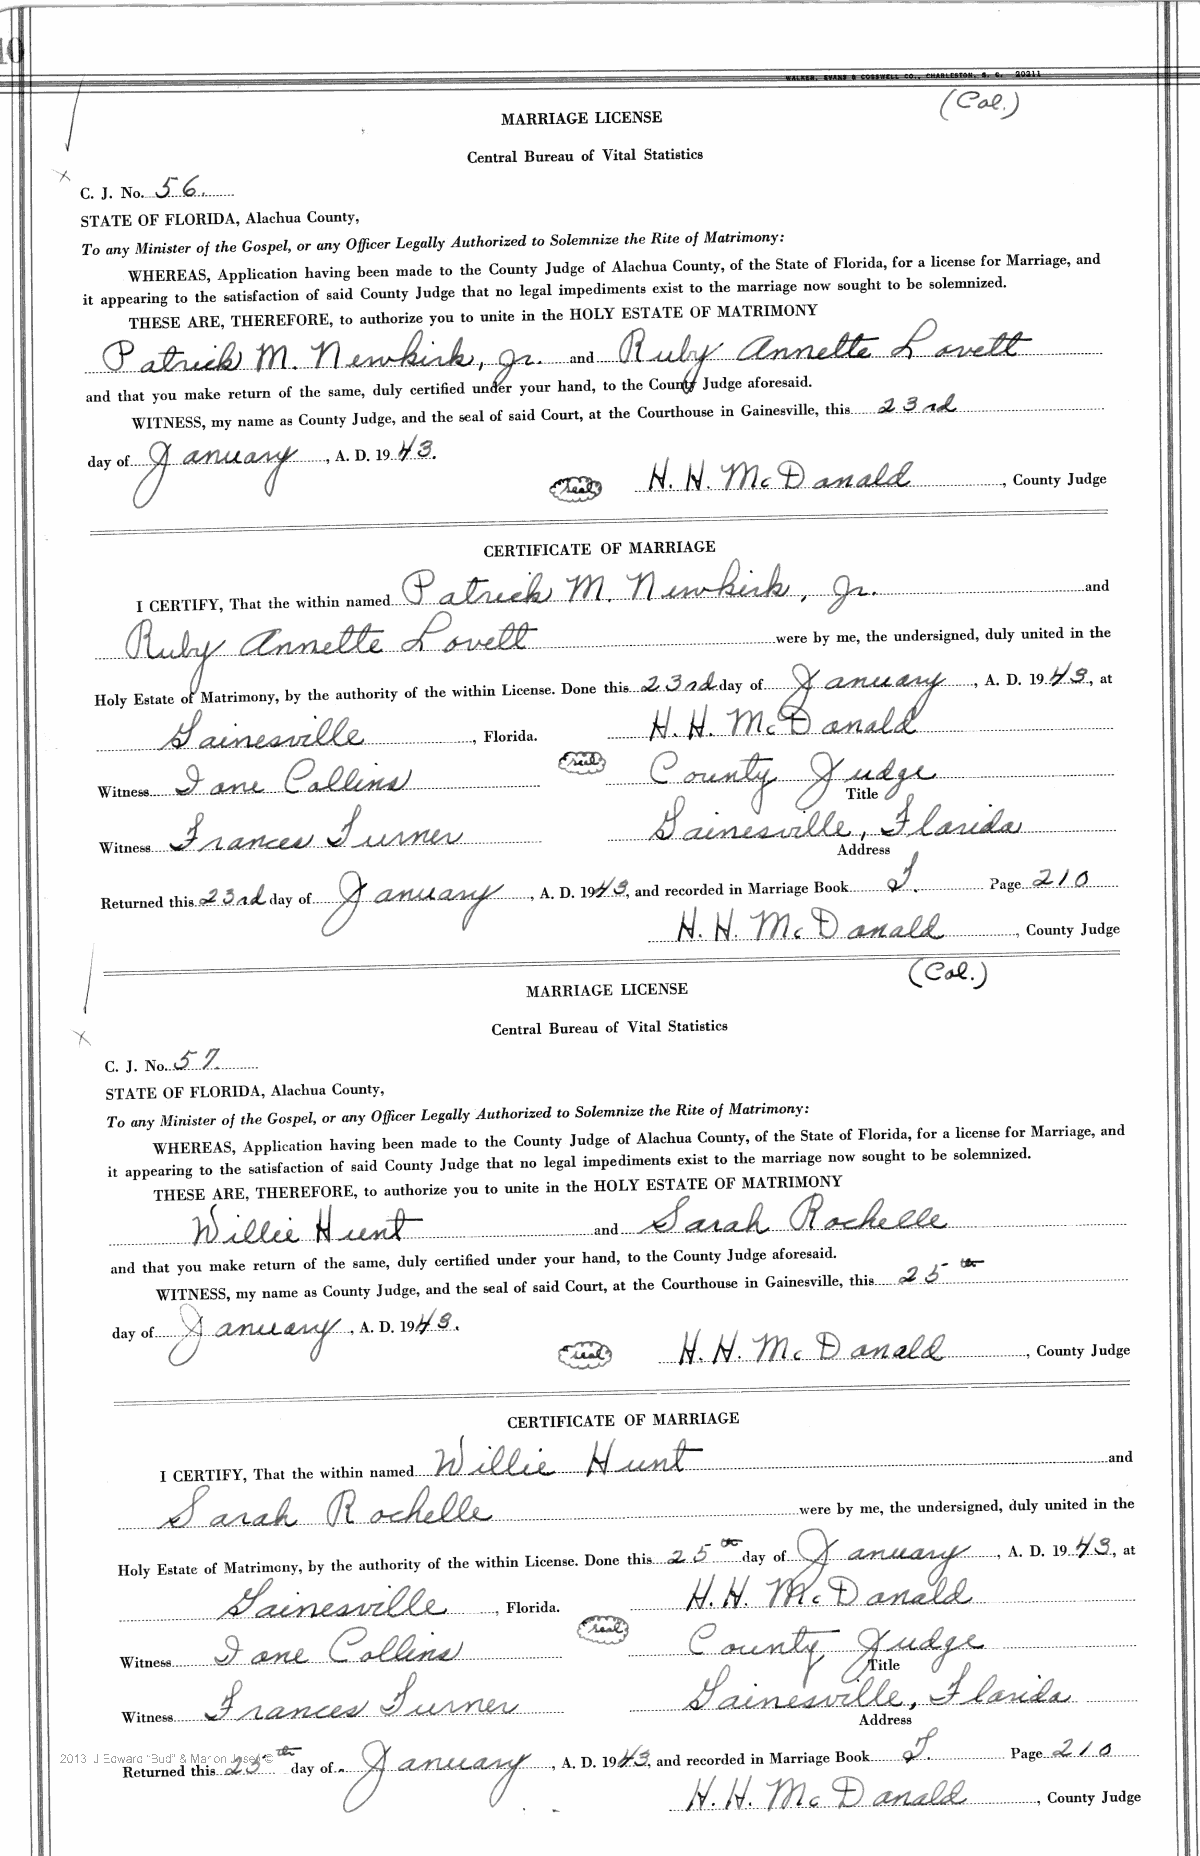 10
WALKER, EVANS & COGSWELL CO., CHARLESTON, S. C. 20211
(Col.)
MARRIAGE LICENSE
Central Bureau of Vital Statistics
x
C. J. No. 56.
STATE OF FLORIDA, Alachua County,
To any Minister of the Gospel, or any Officer Legally Authorized to Solemnize the Rite of Matrimony:
WHEREAS, Application having been made to the County Judge of Alachua County, of the State of Florida, for a license for Marriage, and
it appearing to the satisfaction of said County Judge that no legal impediments exist to the marriage now sought to be solemnized.
THESE ARE, THEREFORE, to authorize you to unite in the HOLY ESTATE OF MATRIMONY
Patrick M. Newkirk, Jr. and Ruby Annette Lovett
and that you make return of the same, duly certified under your hand, to the County Judge aforesaid.
WITNESS, my name as County Judge, and the seal of said Court, at the Courthouse in Gainesville, this 23rd
day of January, A. D. 1943.
seal H. H. McDonald, County Judge
CERTIFICATE OF MARRIAGE
I CERTIFY, That the within named Patrick M. Newkirk, Jr. and
Ruby Annette Lovett were by me, the undersigned, duly united in the
Holy Estate of Matrimony, by the authority of the within License. Done this 23rd day of January, A. D. 1943, at
Gainesville, Florida. H. H. McDonald
seal County Judge
Witness Ione Collins Title
Gainesville, Florida
Witness Frances Turner Address
Returned this 23rd day of January, A. D. 1943, and recorded in Marriage Book T. Page 210
H. H. McDonald, County Judge
(Col.)
MARRIAGE LICENSE
Central Bureau of Vital Statistics
x
C. J. No. 57.
STATE OF FLORIDA, Alachua County,
To any Minister of the Gospel, or any Officer Legally Authorized to Solemnize the Rite of Matrimony:
WHEREAS, Application having been made to the County Judge of Alachua County, of the State of Florida, for a license for Marriage, and
it appearing to the satisfaction of said County Judge that no legal impediments exist to the marriage now sought to be solemnized.
THESE ARE, THEREFORE, to authorize you to unite in the HOLY ESTATE OF MATRIMONY
Willie Hunt and Sarah Rochelle
and that you make return of the same, duly certified under your hand, to the County Judge aforesaid.
WITNESS, my name as County Judge, and the seal of said Court, at the Courthouse in Gainesville, this 25th
day of January, A. D. 1943.
seal H. H. McDonald, County Judge
CERTIFICATE OF MARRIAGE
I CERTIFY, That the within named Willie Hunt and
Sarah Rochelle were by me, the undersigned, duly united in the
Holy Estate of Matrimony, by the authority of the within License. Done this 25th day of January, A. D. 1943, at
Gainesville, Florida. H. H. McDonald
seal County Judge
Witness Ione Collins Title
Gainesville, Florida
Witness Frances Turner Address
2013 J Edward "Bud" & Marion
Returned this 25th day of January, A. D. 1943, and recorded in Marriage Book T. Page 210
H. H. McDonald, County Judge